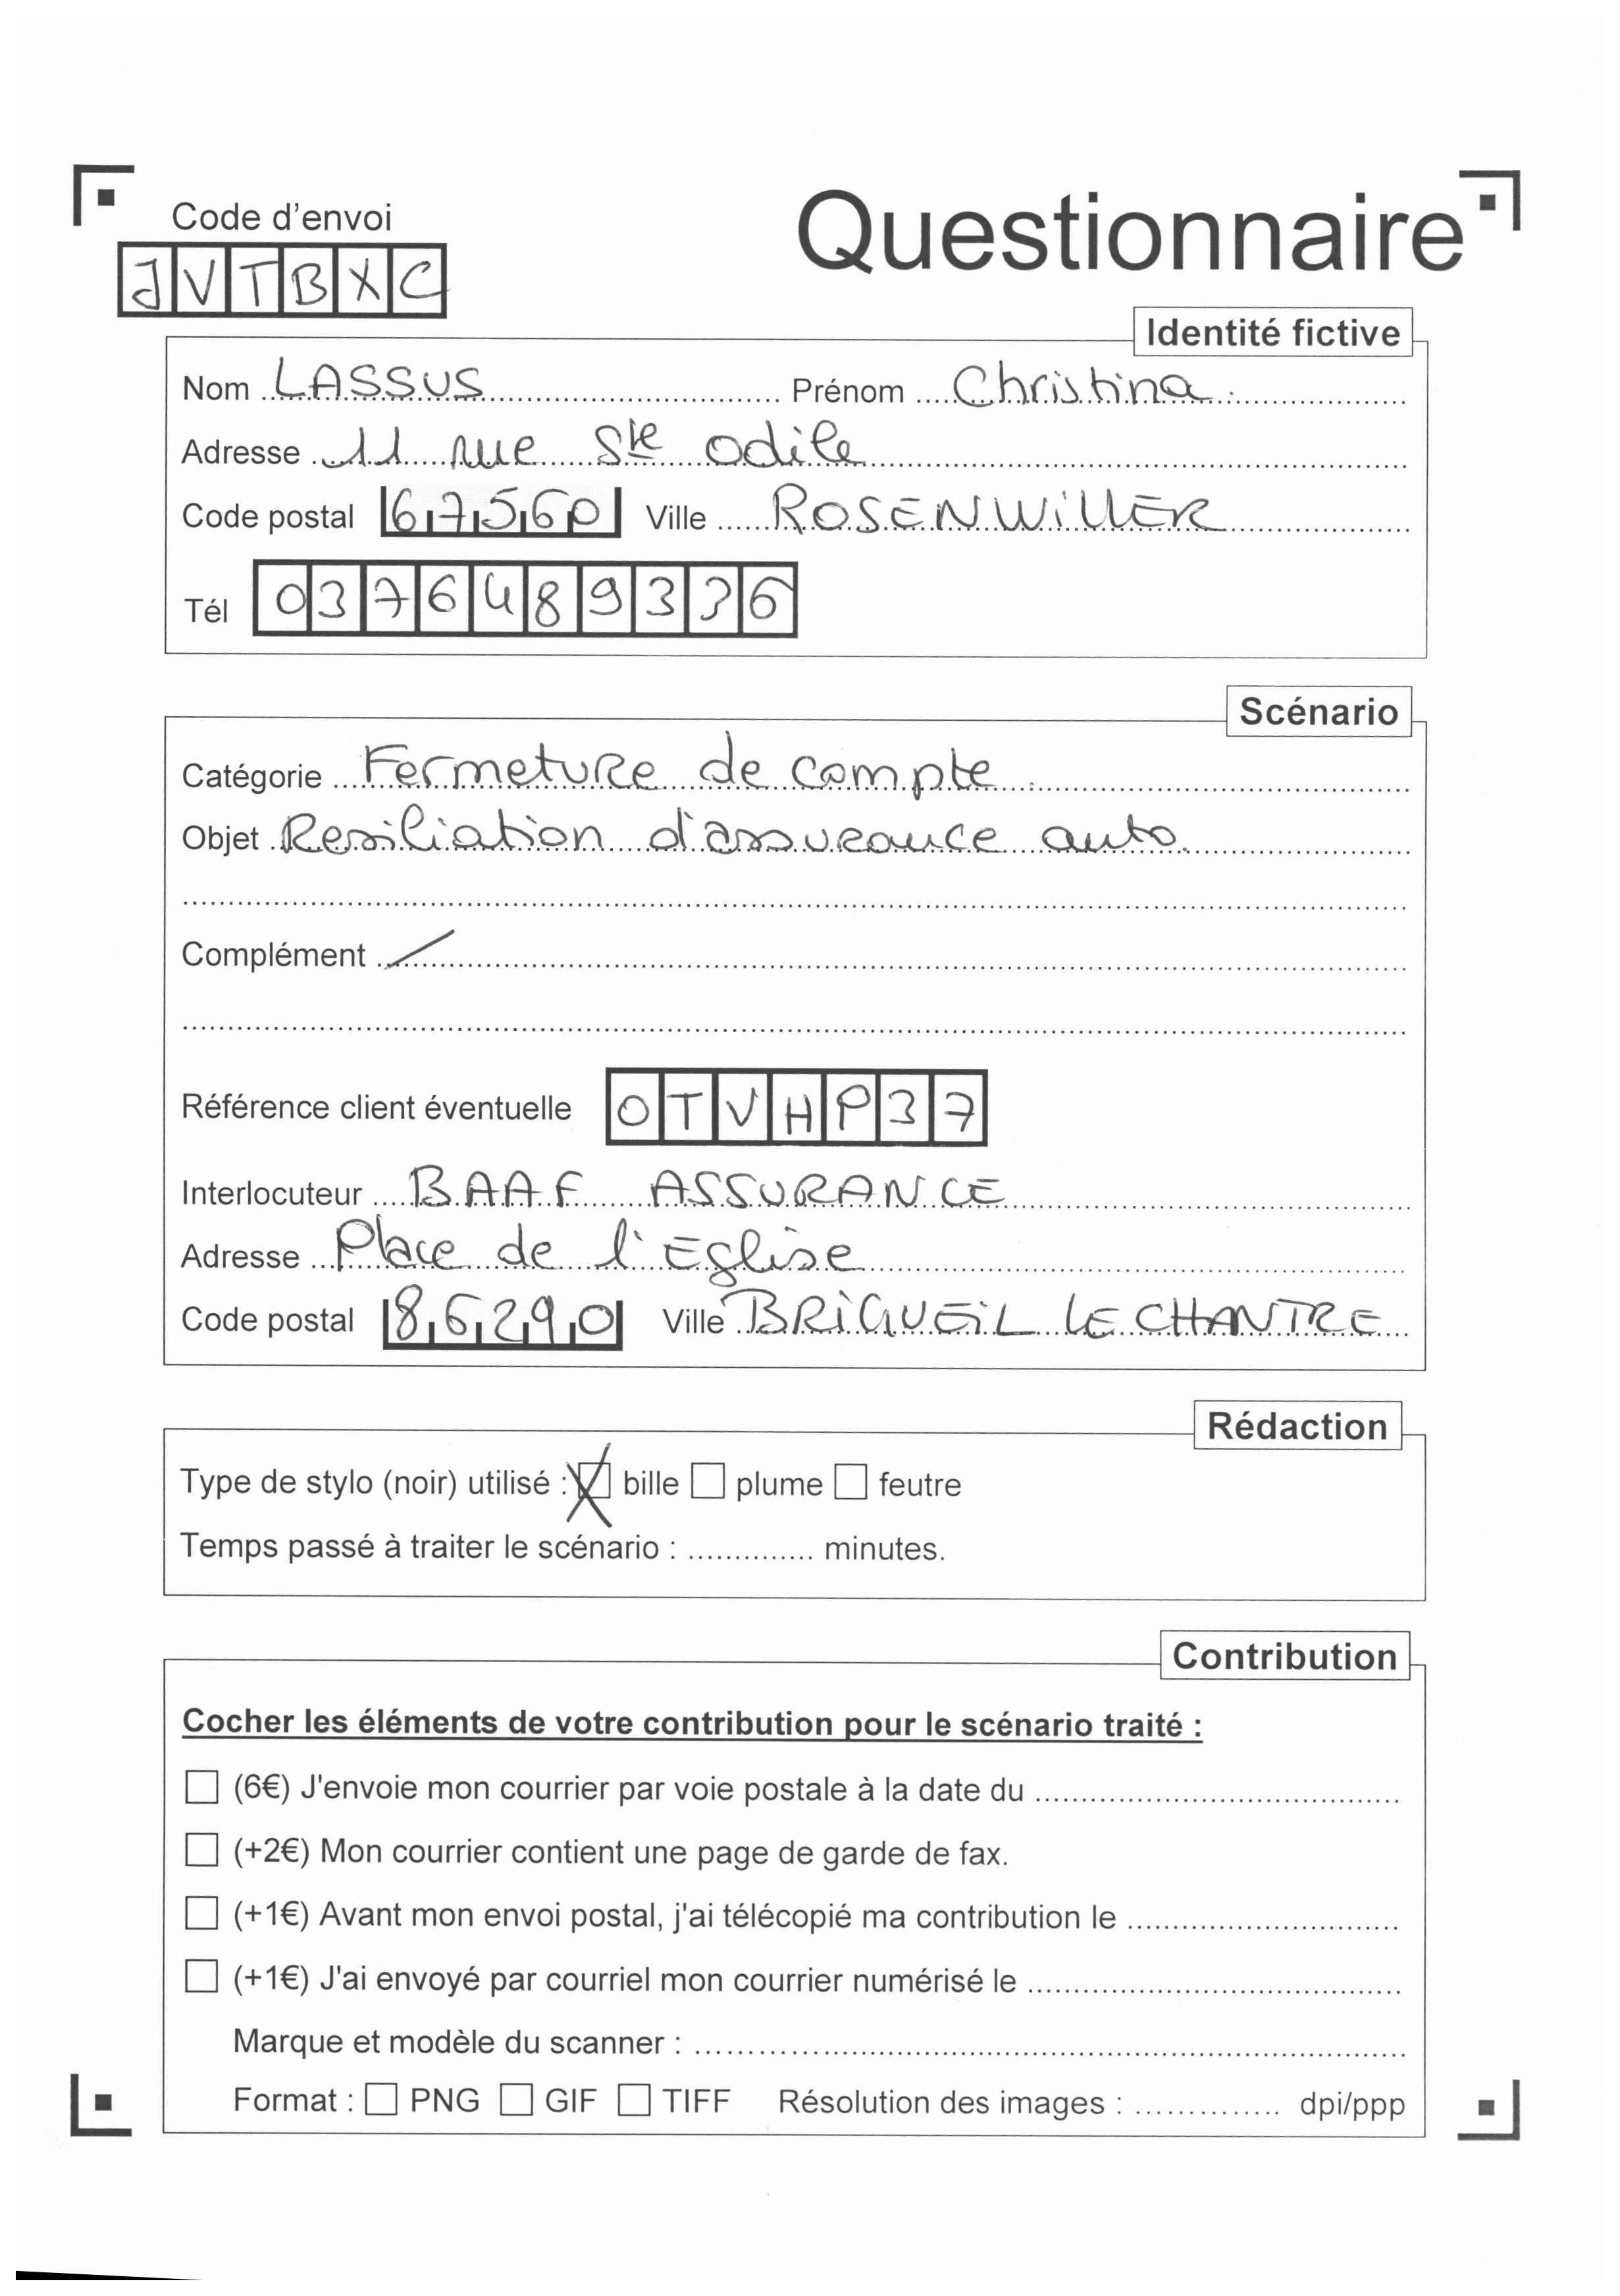 Code d'envoi
Questionnaire
JVTBXC
Identité fictive
Nom LASSUS Prénom Christina
Adresse 11 rue Ste odile
Code postal 67560 Ville ROSENWiLLER
Tél 03764893
Scénario
Catégorie FermetuRe de compte
Objet Resiliation d'assuRance auto
Complément /
Référence client éventuelle OTVHP37
Interlocuteur BAAF ASSURANCE
Adresse Place de l'Eglise
Code postal 86290 Ville BRiGUEiL LE CHANTRE
Rédaction
Type de stylo (noir) utilisé : X bille plume feutre
Temps passé à traiter le scénario : .............. minutes.
Contribution
Cocher les éléments de votre contribution pour le scénario traité :
(6€) J'envoie mon courrier par voie postale à la date du ........................................
(+2€) Mon courrier contient une page de garde de fax.
(+1€) Avant mon envoi postal, j'ai télécopié ma contribution le ..............................
(+1€) J'ai envoyé par courriel mon courrier numérisé le .........................................
Marque et modèle du scanner : ...............................................................................
Format : PNG GIF TIFF Résolution des images : ................ dpi/ppp